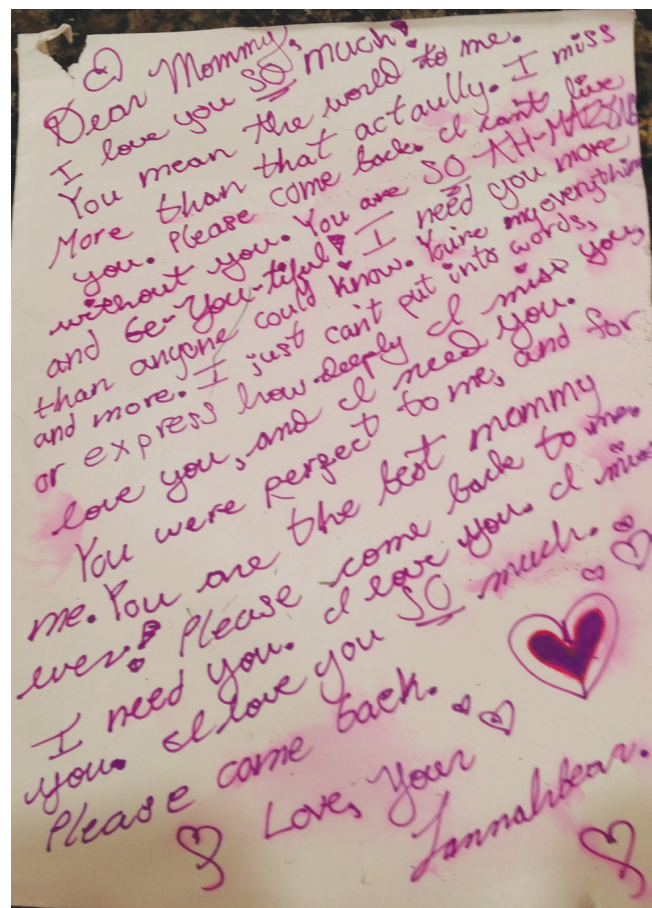 Dear Mommy,
I love you SO much!
You mean the world to me.
More than that actaully. I miss
you. Please come back. I can't live
without you. You are SO-AH-MAZING
and be-You-tiful! I need you more
than anyone could know. You're my everything
and more. I just can't put into words,
or express how deeply I miss you,
love you, and I need you.
You were perfect to me, and for
me. You are the best mommy
ever! Please come back to me.
I need you. I love you. I miss
you. I love you SO much.
Please come back.
Love, Your
Jannahbear.